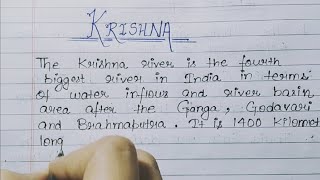 KRISHNA
The Krishna river is the fourth
biggest river in India in terms
of water inflows and river basin
area after the Ganga, Godavari
and Brahmaputra. It is 1400 kilomet
long